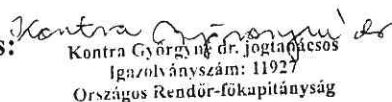 s: Kontra Györgyné dr
Kontra Györgyné dr. jogtanácsos
Igazolványszám: 11927
Országos Rendőr-főkapitányság